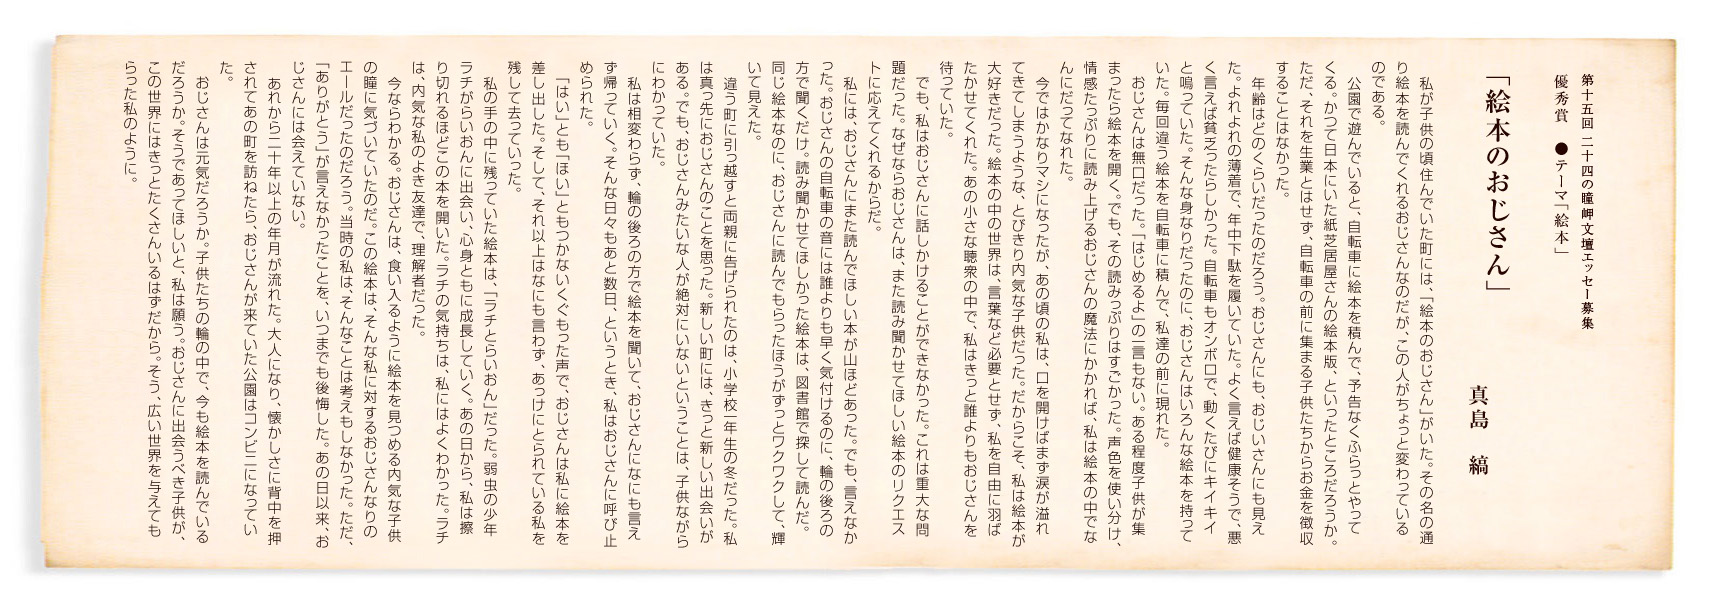 第十五回 二十四の瞳岬文壇エッセー募集
優秀賞 ●テーマ「絵本」
「絵本のおじさん」
真島 縞
私が子供の頃住んでいた町には、「絵本のおじさん」がいた。その名の通
り絵本を読んでくれるおじさんなのだが、この人がちょっと変わっている
のである。
公園で遊んでいると、自転車に絵本を積んで、予告なくふらっとやって
くる。かつて日本にいた紙芝居屋さんの絵本版、といったところだろうか。
ただ、それを生業とはせず、自転車の前に集まる子供たちからお金を徴収
することはなかった。
年齢はどのくらいだったのだろう。おじさんにも、おじいさんにも見え
た。よれよれの薄着で、年中下駄を履いていた。よく言えば健康そうで、悪
く言えば貧乏ったらしかった。自転車もオンボロで、動くたびにキイキイ
と鳴っていた。そんな身なりだったのに、おじさんはいろんな絵本を持って
いた。毎回違う絵本を自転車に積んで、私達の前に現れた。
おじさんは無口だった。「はじめるよ」の一言もない。ある程度子供が集
まったら絵本を開く。でも、その読みっぷりはすごかった。声色を使い分け、
情感たっぷりに読み上げるおじさんの魔法にかかれば、私は絵本の中でな
んにだってなれた。
今ではかなりマシになったが、あの頃の私は、口を開けばまず涙が溢れ
てきてしまうような、とびきり内気な子供だった。だからこそ、私は絵本が
大好きだった。絵本の中の世界は、言葉など必要とせず、私を自由に羽ば
たかせてくれた。あの小さな聴衆の中で、私はきっと誰よりもおじさんを
待っていた。
でも、私はおじさんに話しかけることができなかった。これは重大な問
題だった。なぜならおじさんは、また読み聞かせてほしい絵本のリクエス
トに応えてくれるからだ。
私には、おじさんにまた読んでほしい本が山ほどあった。でも、言えなか
った。おじさんの自転車の音には誰よりも早く気付けるのに、輪の後ろの
方で聞くだけ。読み聞かせてほしかった絵本は、図書館で探して読んだ。
同じ絵本なのに、おじさんに読んでもらったほうがずっとワクワクして、輝
いて見えた。
違う町に引っ越すと両親に告げられたのは、小学校一年生の冬だった。私
は真っ先におじさんのことを思った。新しい町には、きっと新しい出会いが
ある。でも、おじさんみたいな人が絶対にいないということは、子供ながら
にわかっていた。
私は相変わらず、輪の後ろの方で絵本を聞いて、おじさんになにも言え
ず帰っていく。そんな日々もあと数日、というとき、私はおじさんに呼び止
められた。
「はい」とも「ほい」ともつかないくぐもった声で、おじさんは私に絵本を
差し出した。そして、それ以上はなにも言わず、あっけにとられている私を
残して去っていった。
私の手の中に残っていた絵本は、「ラチとらいおん」だった。弱虫の少年
ラチがらいおんに出会い、心身ともに成長していく。あの日から、私は擦
り切れるほどこの本を開いた。ラチの気持ちは、私にはよくわかった。ラチ
は、内気な私のよき友達で、理解者だった。
今ならわかる。おじさんは、食い入るように絵本を見つめる内気な子供
の瞳に気づいていたのだ。この絵本は、そんな私に対するおじさんなりの
エールだったのだろう。当時の私は、そんなことは考えもしなかった。ただ、
「ありがとう」が言えなかったことを、いつまでも後悔した。あの日以来、お
じさんには会えていない。
あれから二十年以上の年月が流れた。大人になり、懐かしさに背中を押
されてあの町を訪ねたら、おじさんが来ていた公園はコンビニになってい
た。
おじさんは元気だろうか。子供たちの輪の中で、今も絵本を読んでいる
だろうか。そうであってほしいと、私は願う。おじさんに出会うべき子供が、
この世界にはきっとたくさんいるはずだから。そう、広い世界を与えても
らった私のように。